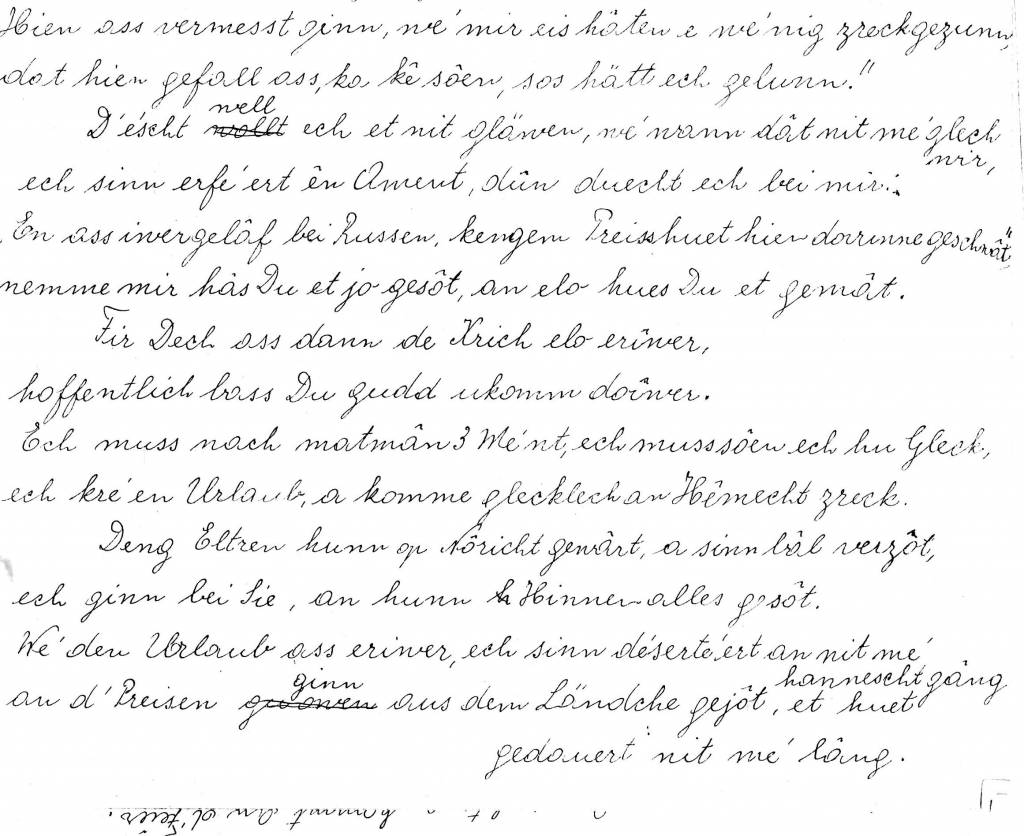 Hien ass vermesst ginn, wé mir eis hâten e wé'nig zreckgezunn,
dat hien gefall ass, ka kê sôen, sos hätt ech gelunn."
D'éscht well wollt ech et nit gläwen, wé wann dât nit mé'glech wir,
ech sinn erfé'ert ên Ament, dûn duecht ech bei mir:
En ass iwergelâf bei Russen, kengem Preiss huet hien dovunne geschwât,"
nemme mir hâs Du et jo gesôt, an elo hues Du et gemât.
Fir Dech ass dann de Krich elo eriwer,
hoffentlich bass Du gudd ukomm doîwer.
Ech muss nach matmân 3 Mé'nt, ech muss sôen ech hu Gleck,
ech kré'en Urlaub, a komme glecklech an Hêmecht zreck.
Deng Eltren hunn op Nôricht gewârt, a sinn bâl verzôt,
ech ginn bei Sie, an hunn Hinnen alles gesôt.
Wé' den Urlaub ass eriwer, ech sinn déserté'ert an nit mé
an d'Preisen ginn aus dem Ländche gejôt, et huet hannescht gâng
gedauert nit mé' lâng.
kommt an d'Feier.